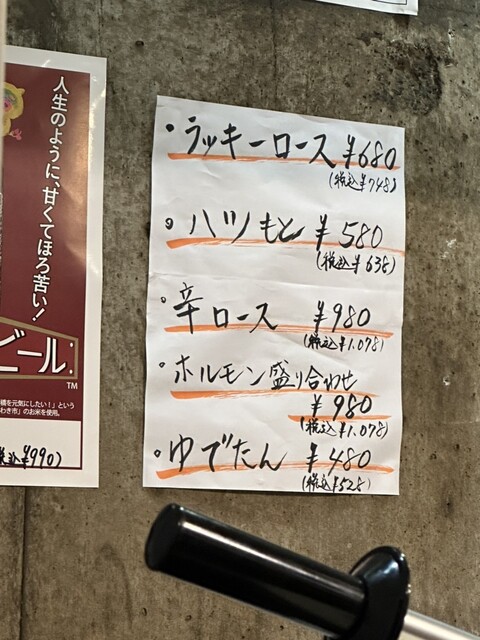 人生のように、甘くてほろ苦い!
ビール
TM
橋を元気にしたい!」という
わき市」のお米を使用。
税込¥990)
・ラッキーロース ¥680
(税込¥748)
・ハツもと ¥580
(税込¥638)
・辛ロース ¥980
(税込¥1,078)
・ホルモン盛り合わせ
¥980
(税込¥1,078)
・ゆでたん ¥480
(税込¥528)